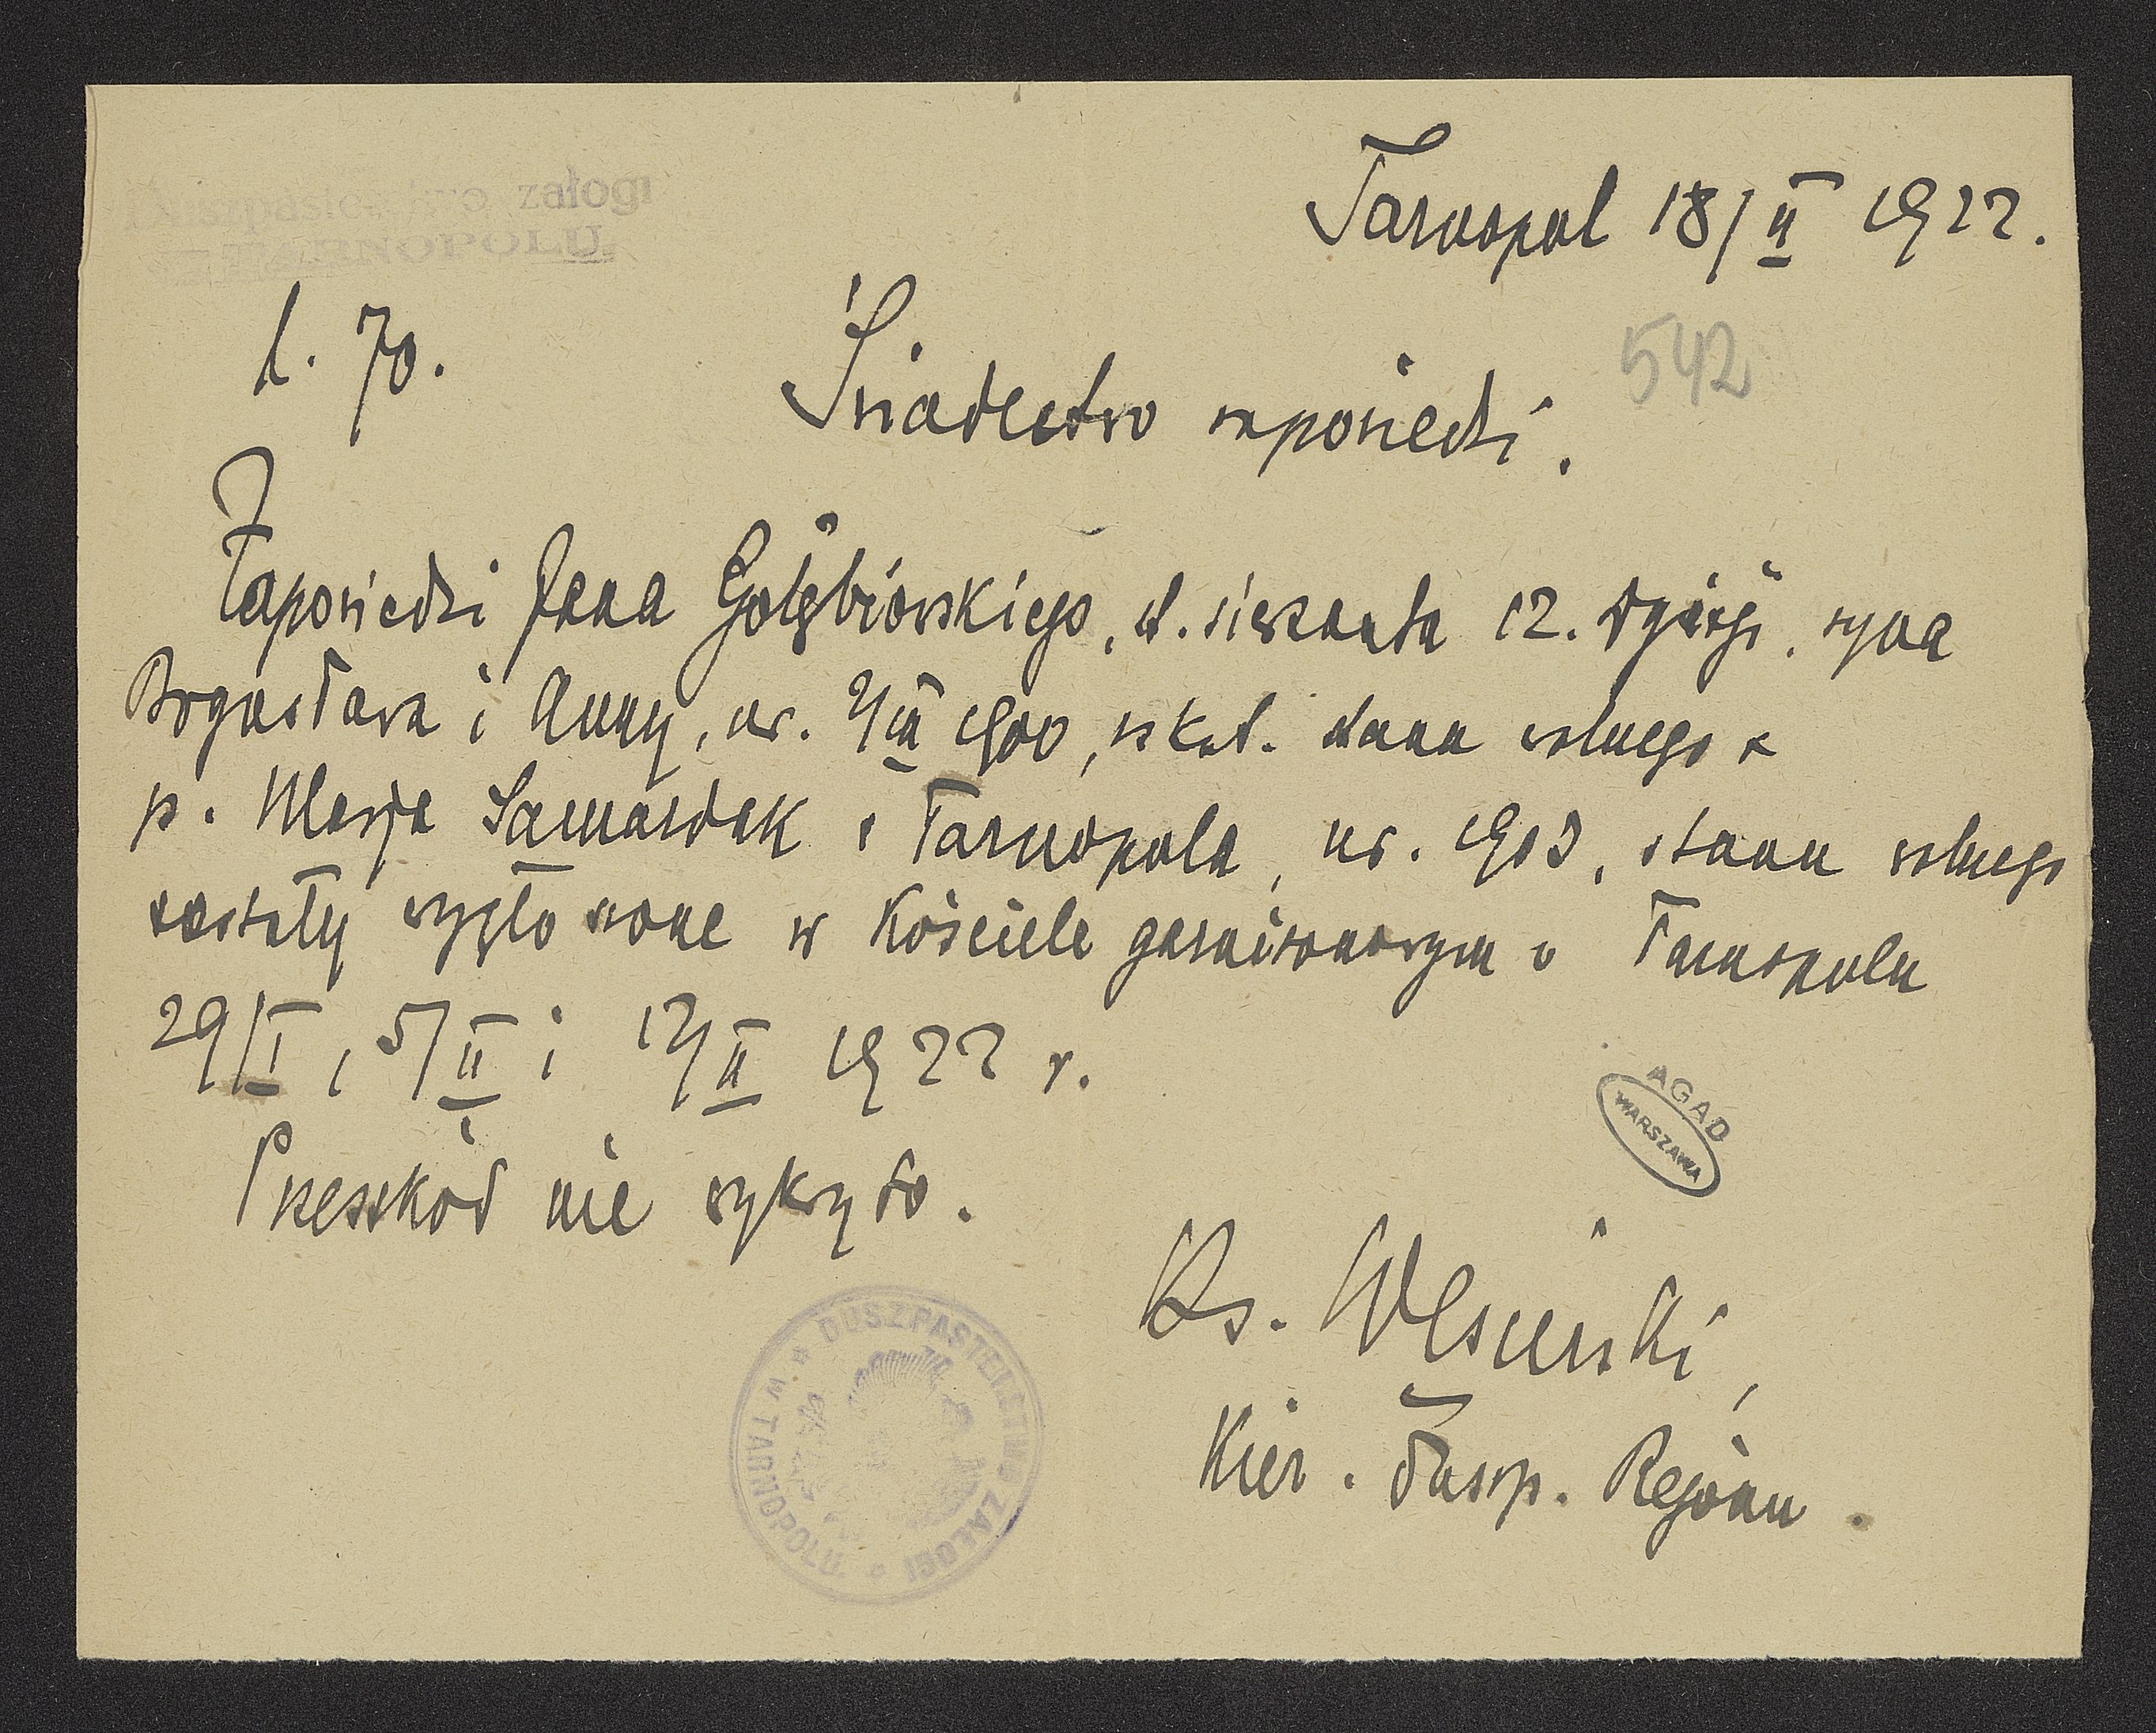 Duszpasterstwo załogi
TARNOPOLU.
Tarnopol 18/II 1922.
L. 70.
542
Świadectwo zapowiedzi.
Zapowiedzi Jana Gołębiowskiego, st. sierżanta 12. syna
Bogusława i Anny, ur. 1900, rz kat. stanu wolnego z
p. Marją Samardak z Tarnopola, ur. 1903, stanu wolnego
zostały wygłoszone w Kościele garnizonowym w Tarnopolu
29/I, 5/II i 12/II 1922 r.
Przeszkód nie wykryto.
AGAD
WARSZAWA
Ks.
Kier. duszp. Rejonu.
DUSZPASTERSTWO ZAŁOGI W TARNOPOLU